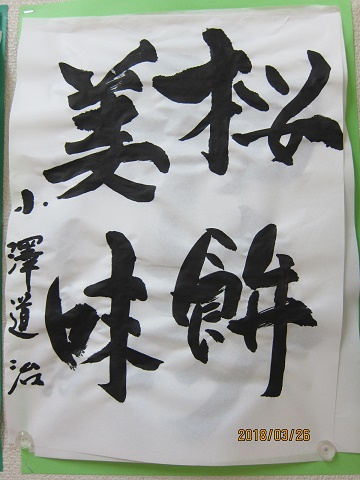 桜餅
美味
小澤道治
2018/03/26